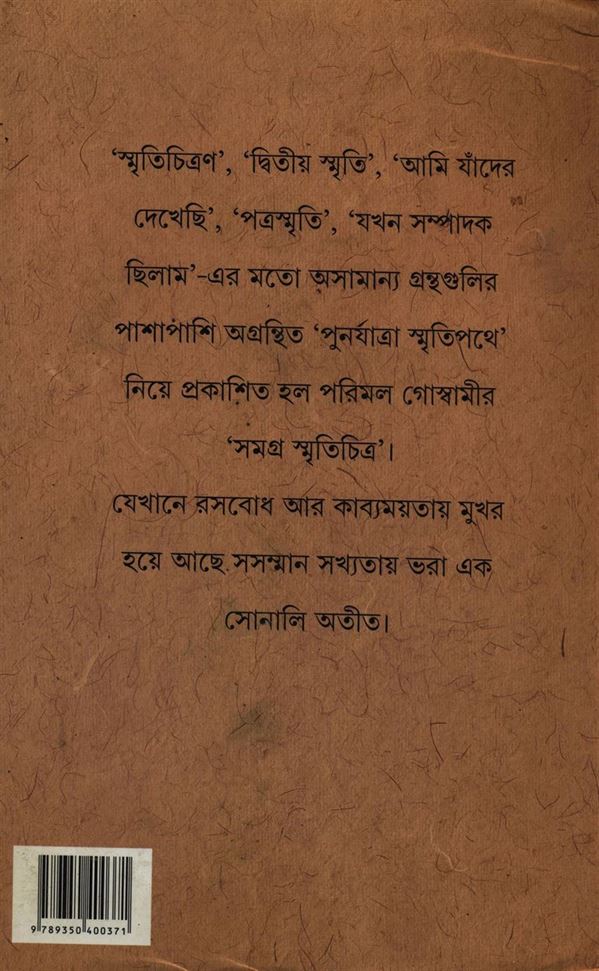 ‘স্মৃতিচিত্রণ’, ‘দ্বিতীয় স্মৃতি’, ‘আমি যাঁদের
দেখেছি’, ‘পত্রস্মৃতি’, ‘যখন সম্পাদক
ছিলাম’-এর মতো অসামান্য গ্রন্থগুলির
পাশাপাশি অগ্রন্থিত ‘পুনর্যাত্রা স্মৃতিপথে’
নিয়ে প্রকাশিত হল পরিমল গোস্বামীর
‘সমগ্র স্মৃতিচিত্র’।
যেখানে রসবোধ আর কাব্যময়তায় মুখর
হয়ে আছে সসম্মান সখ্যতায় ভরা এক
সোনালি অতীত।
9 789350 400371